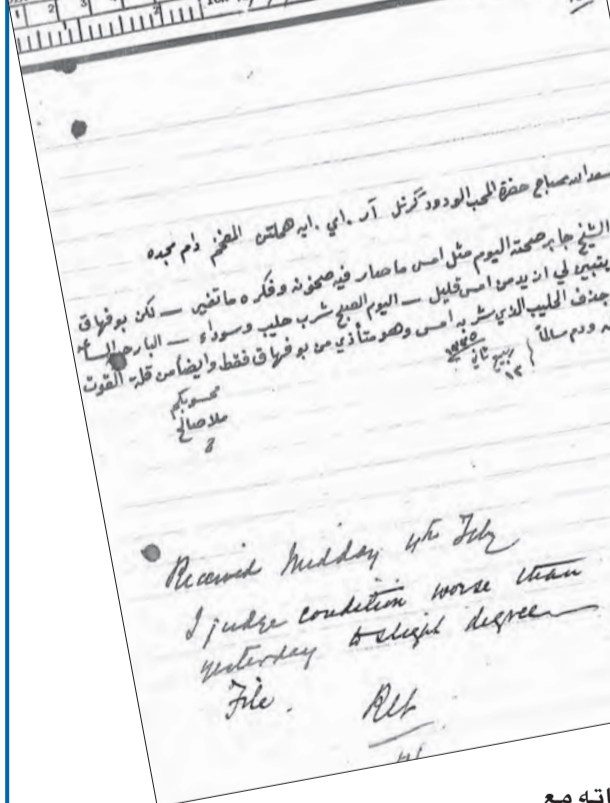 1 2 3 4
أسعد الله صباح حضرة المحب الودود كرنل آر . اي . ايه هملتن المفخم دام مجده
الشيخ جابر صحته اليوم مثل امس ما صار فيه صخونه وفكره ما تغير — لكن بوفهاق
يتبين لي ازيد من امس قليل — اليوم الصبح شرب حليب وسوداء — البارحه
حذف الحليب الذي شربه امس وهو متأذي من بوفهاق فقط وايضا من قلة القوت
ودم سالماً ربيع ثاني ١٣٣٥
١٢
محسوبكم
ملا صالح
Received Midday 4th Feby
I judge condition worse than
yesterday to slight degree
File.
اته مع